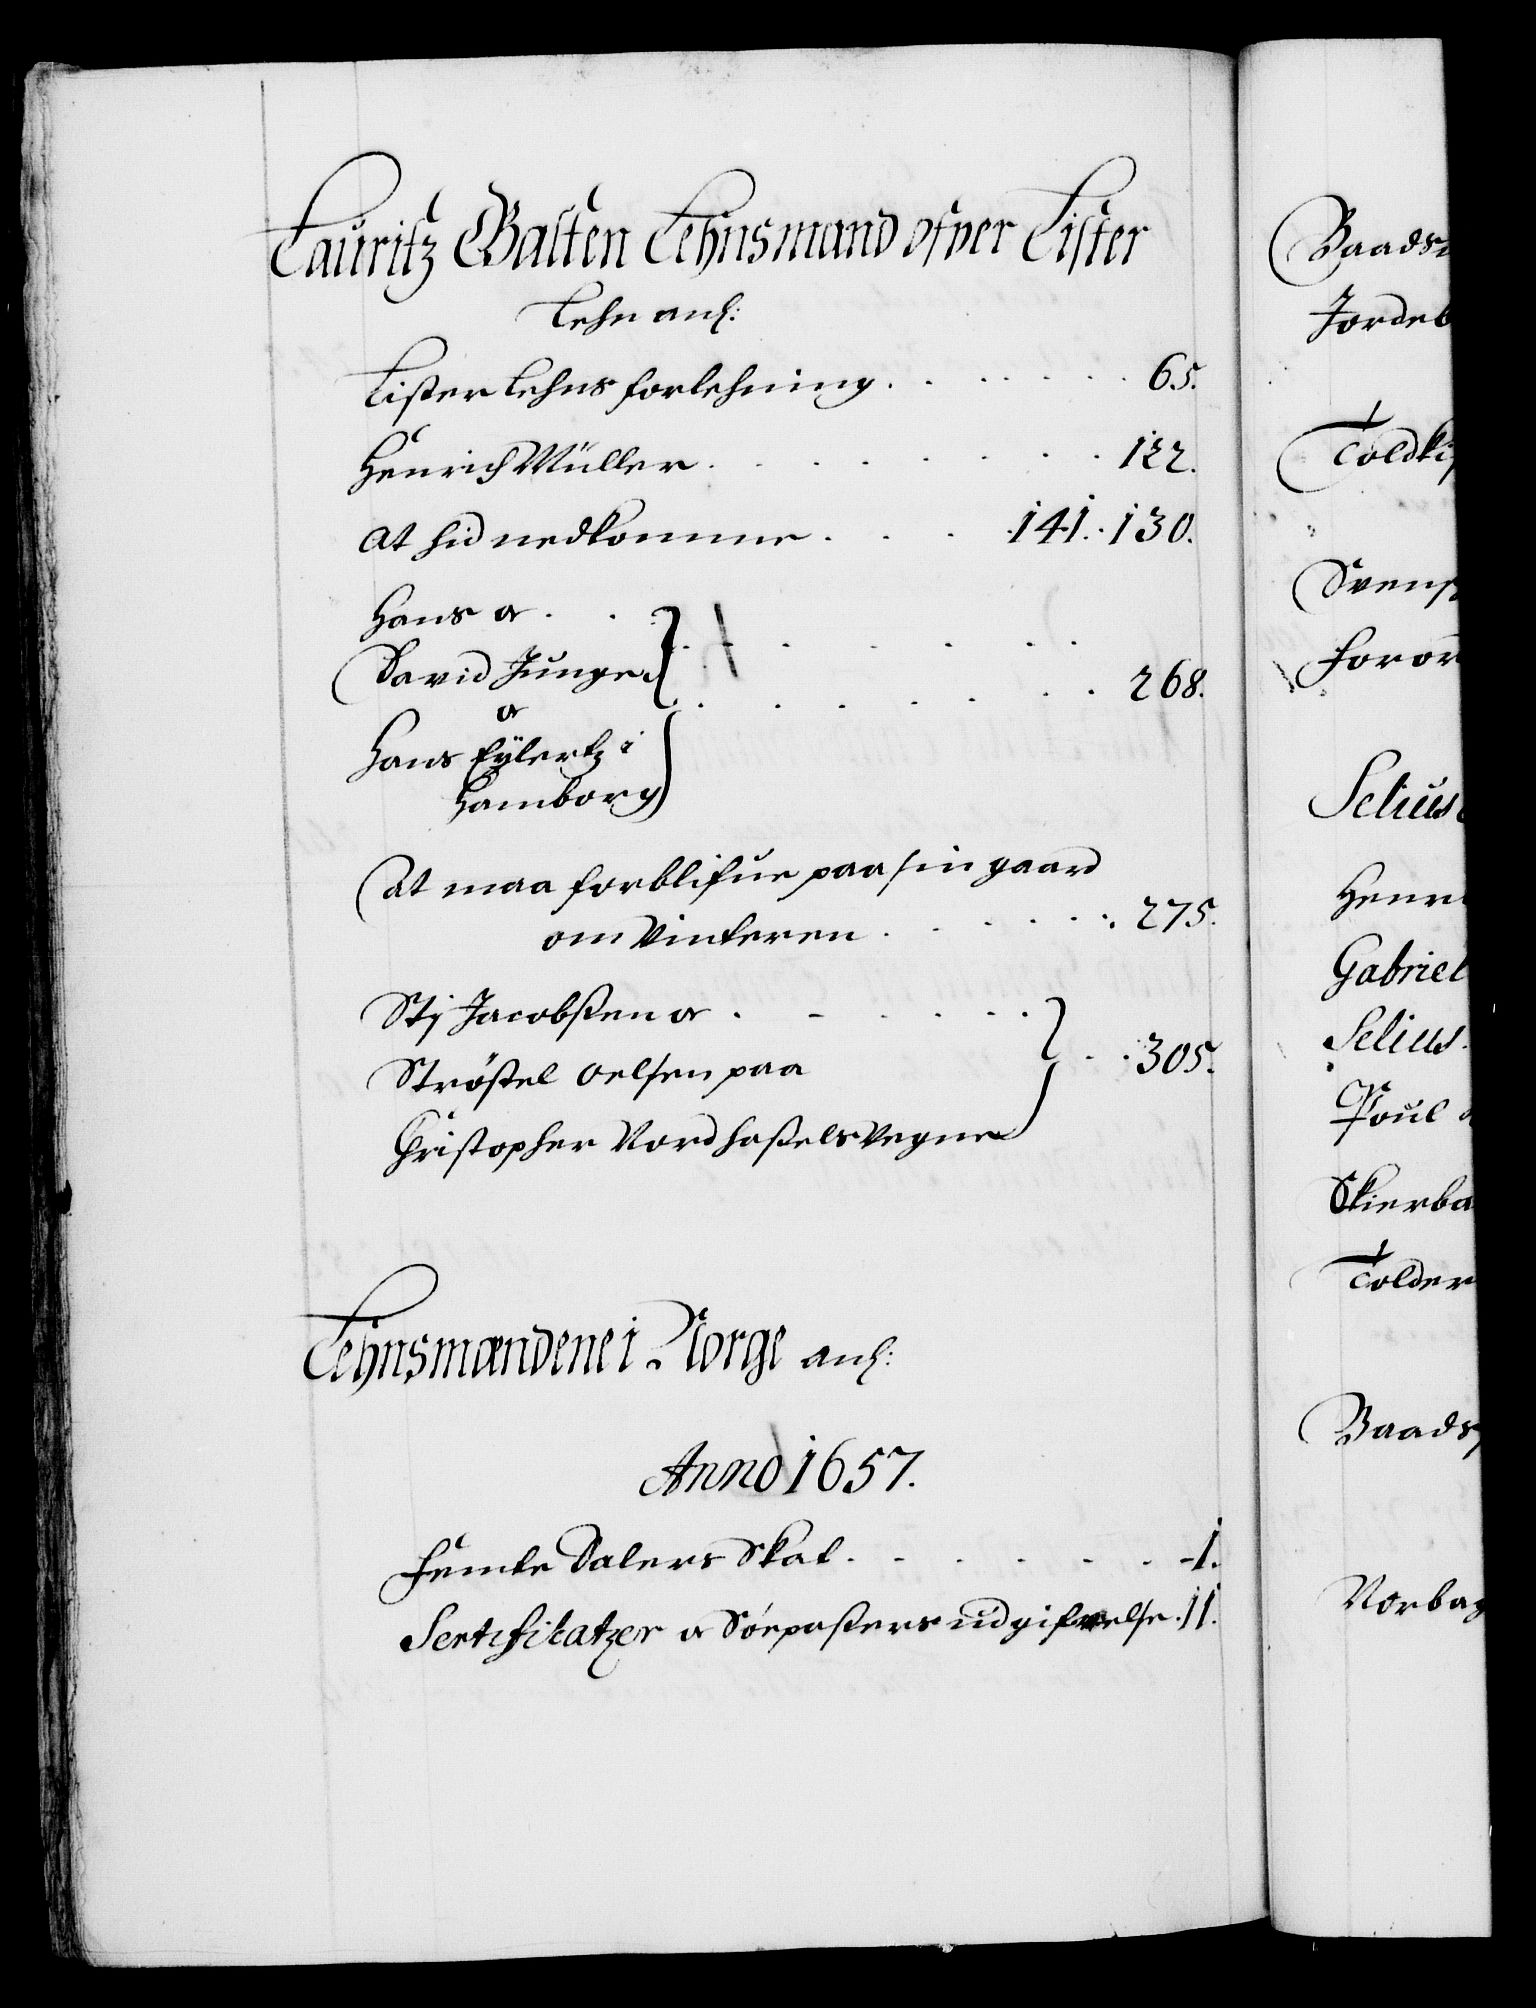 Lauritz Galten Lehnsmand ofver Lister
Lehn anl:
Lister Lehns forlehning . . . . . . . 65.
Henrich Müller . . . . . . . . 122.
at hid nedkomme . . . 141. 130.
Hans oc . . .
David Junge . . . . . . .
oc . . . . . . . 268.
Hans Eÿlertz i
Hamborg
At maa forblifue paa sin gaard
om Vinteren . . . . . . 275.
Stj Jacobsen oc . . . . . .
Ströstel Oelsen paa . . 305.
Christopher Nordhassels Vegne
Lehnsmændene i Norge anl:
Anno 1657.
Femte Dalers Skat . . . . . . . 1.
Sertifikatzer oc Söepassers udgifvelse . 11.
Baads
Jordeb
Toldk
Svens
Foror
Selius
Henr
Gabriel
Selius.
Poul
Skierba
Tolder
Baads
Norbag